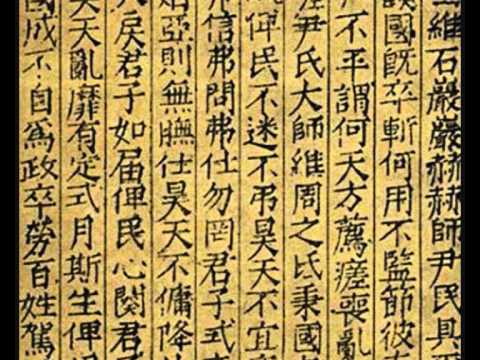 維石巖巖赫赫師尹民具
國既卒斬何用不監節彼
不平謂何天方薦瘥喪亂
尹氏大師維周之氏秉國
俾民不迷不弔昊天不宜
信弗問弗仕勿罔君子式
亞則無膴仕昊天不傭降
戾君子如届俾民心闋君
天亂靡有定式月斯生俾
國成不自為政卒勞百姓駕